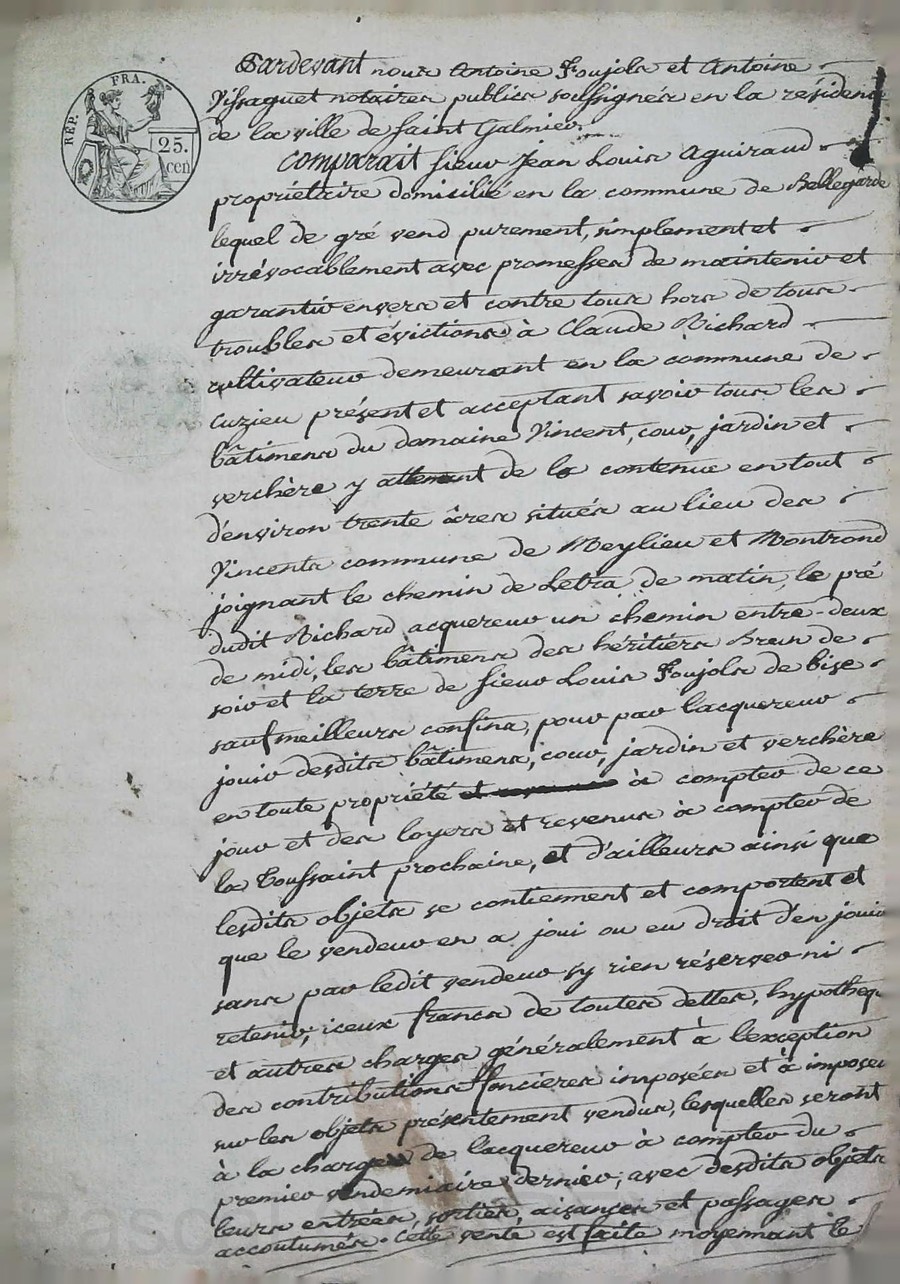 RÉP. FRA.
25.
cen
Pardevant nous Antoine Foujols et Antoine
Vissaguet notaires publics soussignés en la résidence
de la ville de Saint Galmier.
Comparait sieur Jean Louis Aguiraud
propriétaire domicilié en la commune de Bellegarde
lequel de gré vend purement, simplement et
irrévocablement avec promesses de maintenir et
garantir envers et contre tous hors de tous
troubles et évictions à Claude Richard
cultivateur demeurant en la commune de
Cuzieu présent et acceptant savoir tous les
bâtimens du domaine Vincent, cour, jardin et
verchère y attenant de la contenue en tout
d'environ trente âres situés au lieu des
Vincents commune de Meylieu et Montrond
joignant le chemin de Letra de matin, le pré
dudit Richard acquereur un chemin entre-deux
de midi, les bâtimens des héritiers Brun de
soir et la terre de sieur Louis Foujols de bise
sauf meilleurs confins, pour par lacquereur
jouir desdits bâtimens, cour, jardin et verchère
en toute propriété à compter de ce
jour et des loyers et revenus à compter de
la Toussaint prochaine, et d'ailleurs ainsi que
lesdits objets se contiennent et comportent et
que le vendeur en a joui ou eu droit d'en jouir
sans par ledit vendeur s'y rien réserver ni
retenir, iceux francs de toutes dettes, hypothèq.
et autres charges généralement à lexception
des contributions foncières imposées et à imposer
sur les objets présentement vendus, lesquelles seront
à la charge de lacquereur à compter du
premier vendemiaire dernier, avec desdits objets
leurs entrées, sorties, aisances et passages
accoutumés. Cette vente est faite moyennant le